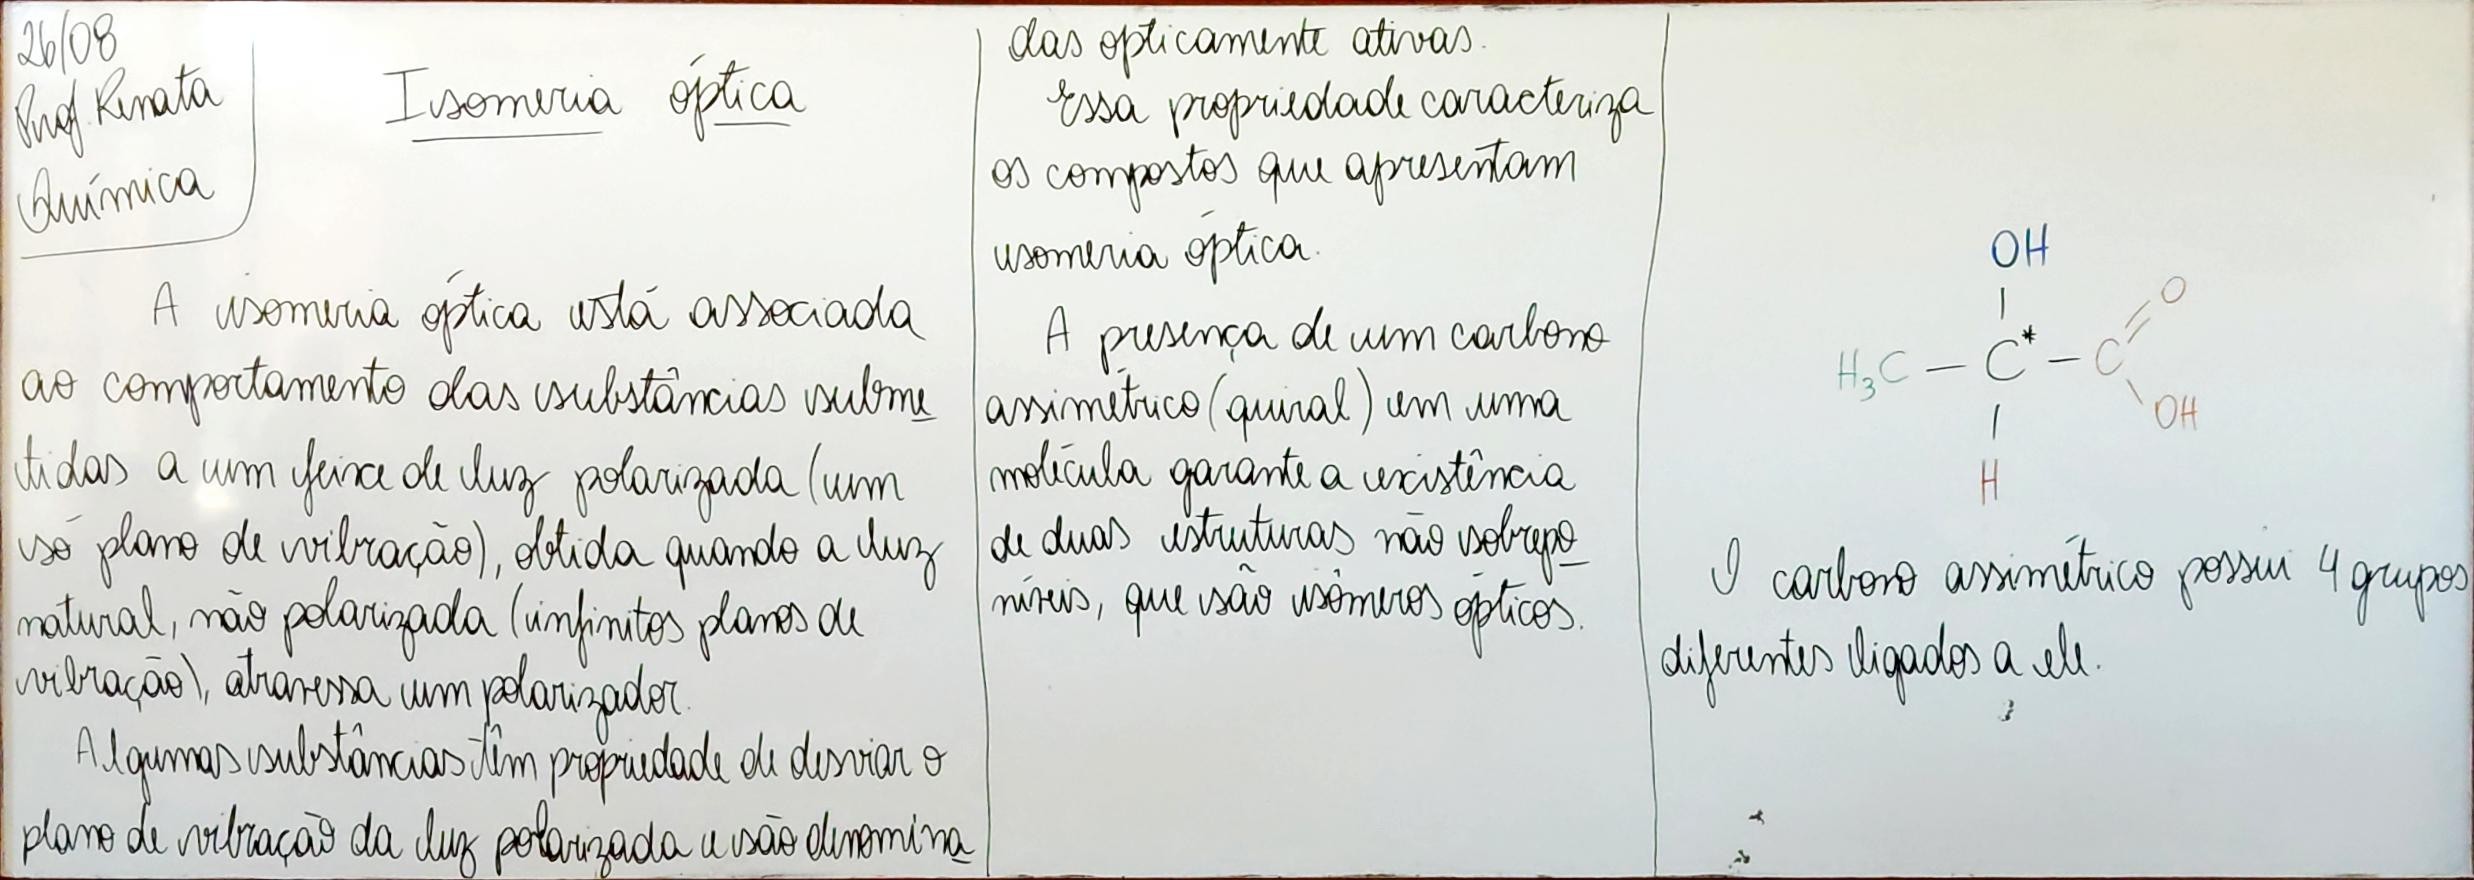 26/08
Prof. Renata
Química
Isomeria óptica
A isomeria óptica está associada
ao comportamento das substâncias subme
tidas a um feixe de luz polarizada (um
só plano de vibração), obtida quando a luz
natural, não polarizada (infinitos planos de
vibração), atravessa um polarizador.
Algumas substâncias têm propriedade de desviar o
plano de vibração da luz polarizada e são denomina
das opticamente ativas.
Essa propriedade caracteriza
os compostos que apresentam
isomeria óptica.
A presença de um carbono
assimétrico (quiral) em uma
molécula garante a existência
de duas estruturas não sobrepo
níveis, que são isômeros ópticos.
OH
O
H₃C — C* — C
OH
H
O carbono assimétrico possui 4 grupos
diferentes ligados a ele.